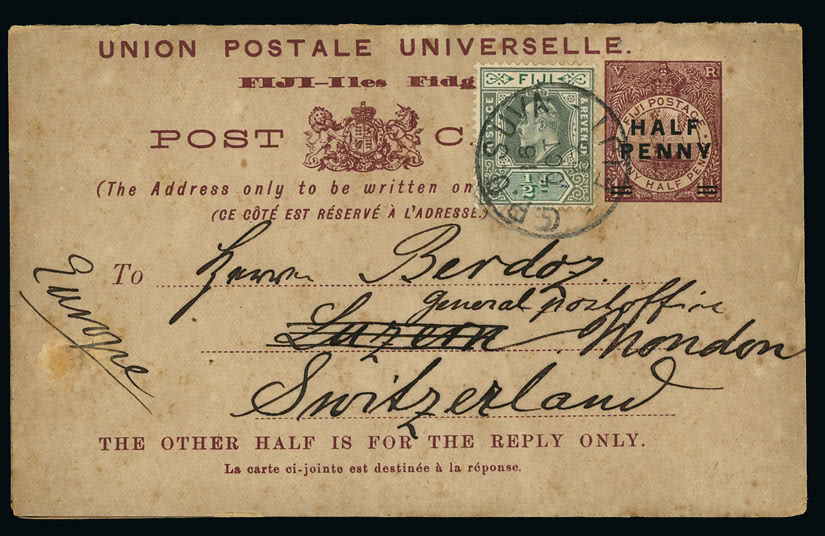 UNION POSTALE UNIVERSELLE.
FIJI-Iles Fidg
POST C
(The Address only to be written on
(CE CÔTÉ EST RÉSERVÉ À L'ADRESSE)
FIJI
POSTAGE & REVENUE
½d
G.P.O. SUVA
8 OC
FIJI
V R
FIJI POSTAGE
PENNY HALF PENNY
HALF
PENNY
Europe
To Herrn Berdoz
general postoffice
Luzern Mondon
Switzerland
THE OTHER HALF IS FOR THE REPLY ONLY.
La carte ci-jointe est destinée à la réponse.